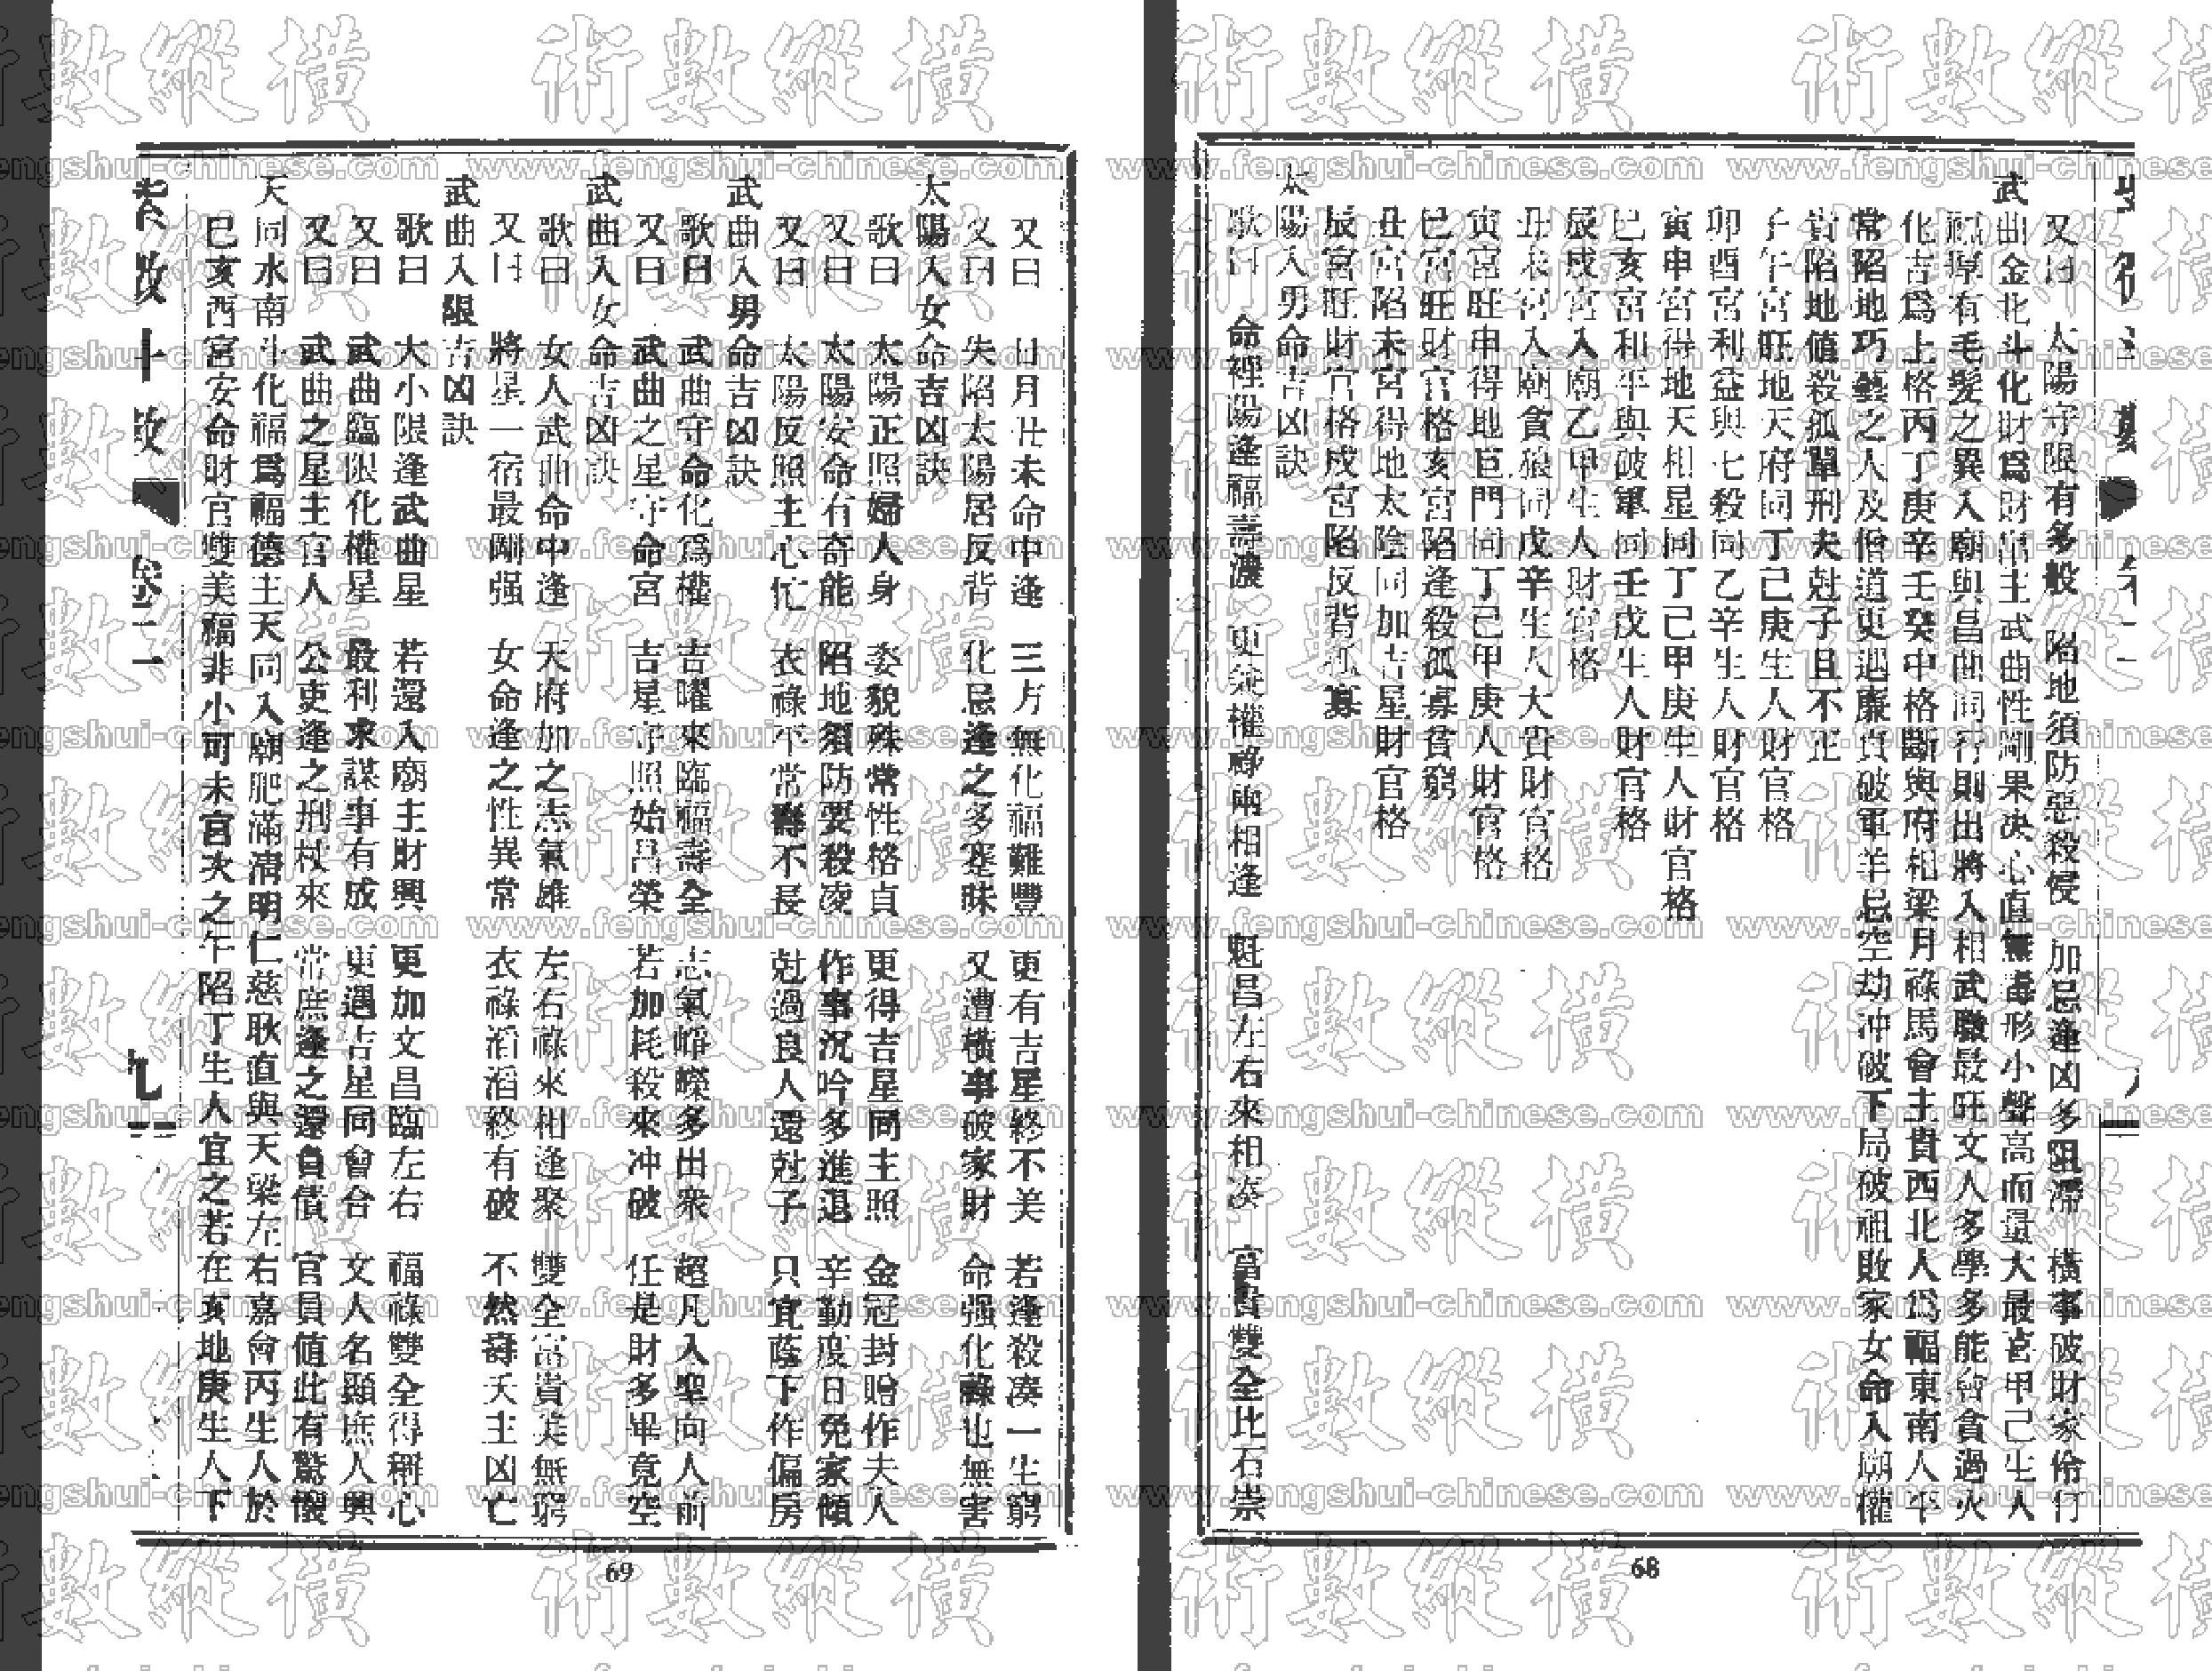 又曰 太陽守限有多般 陷地須防惡殺侵 加忌逢凶多阻滯 橫事破財家伶仃
武曲金北斗化財爲財帛主武曲性剛果决心直無毒形小聲高而量大最喜甲己生人
福厚有毛髮之異入廟與昌曲同行則出將入相武職最旺文人多學多能會貪過火
化吉爲上格丙丁庚辛壬癸中格斷與府相梁月祿馬會主貴西北人爲福東南人平
常陷地巧藝之人及僧道更遇廉貞破軍羊忌空劫冲破下局破祖敗家女命入廟權
貴陷地值殺孤單刑夫尅子且不正
子午宮旺地天府同丁己庚生人財官格
卯酉宮利益與七殺同乙辛生人財官格
寅申宮得地天相星同丁己甲庚生人財官格
巳亥宮和平與破軍同壬戊生人財官格
辰戌宮入廟乙甲生人財官格
丑未宮入廟貪狼同戊辛生人大貴財官格
寅宮旺申得地巨門同丁己甲庚人財官格
巳宮旺財官格亥宮陷逢殺孤寡貧窮
丑宮陷未宮得地太陰同加吉星財官格
辰宮旺財官格戌宮陷反背孤寡
太陽入男命吉凶訣
歌曰 命裡陽逢福壽濃 更兼權祿兩相逢 魁昌左右來相湊 富貴雙全比石崇
68
又曰 日月丑未命中逢 三方無化福難豐 更有吉星終不美 若逢殺湊一生窮
又曰 失陷太陽居反背 化忌逢之多蹇昧 又遭橫事破家財 命强化祿也無害
太陽入女命吉凶訣
歌曰 太陽正照婦人身 姿貌殊常性格貞 更得吉星同主照 金冠封贈作夫人
又曰 太陽安命有奇能 陷地須防要殺凌 作事沉吟多進退 辛勤度日免家傾
又曰 太陽反照主心忙 衣祿平常壽不長 尅過良人還尅子 只宜蔭下作偏房
武曲入男命吉凶訣
歌曰 武曲守命化爲權 吉曜來臨福壽全 志氣崢嶸多出衆 超凡入聖向人前
又曰 武曲之星守命宮 吉星守照始昌榮 若加耗殺來冲破 任是財多畢竟空
武曲入女命吉凶訣
歌曰 女人武曲命中逢 天府加之志氣雄 左右祿來相逢聚 雙全富貴美無窮
又曰 將星一宿最剛强 女命逢之性異常 衣祿滔滔終有破 不然壽夭主凶亡
武曲入限吉凶訣
歌曰 大小限逢武曲星 若還入廟主財興 更加文昌臨左右 福祿雙全得稱心
又曰 武曲臨限化權星 最利求謀事有成 更遇吉星同會合 文人名顯庶人興
又曰 武曲之星主官人 公吏逢之刑杖來 常庶逢之還負債 官員值此有驚懷
天同水南斗化福爲福德主天同入廟肥滿清明仁慈耿直與天梁左右嘉會丙生人於
巳亥酉宮安命財官雙美福非小可未宮次之午陷丁生人宜之若在亥地庚生人下
卷二 九
69
術數縱橫
www.fengshui-chinese.com